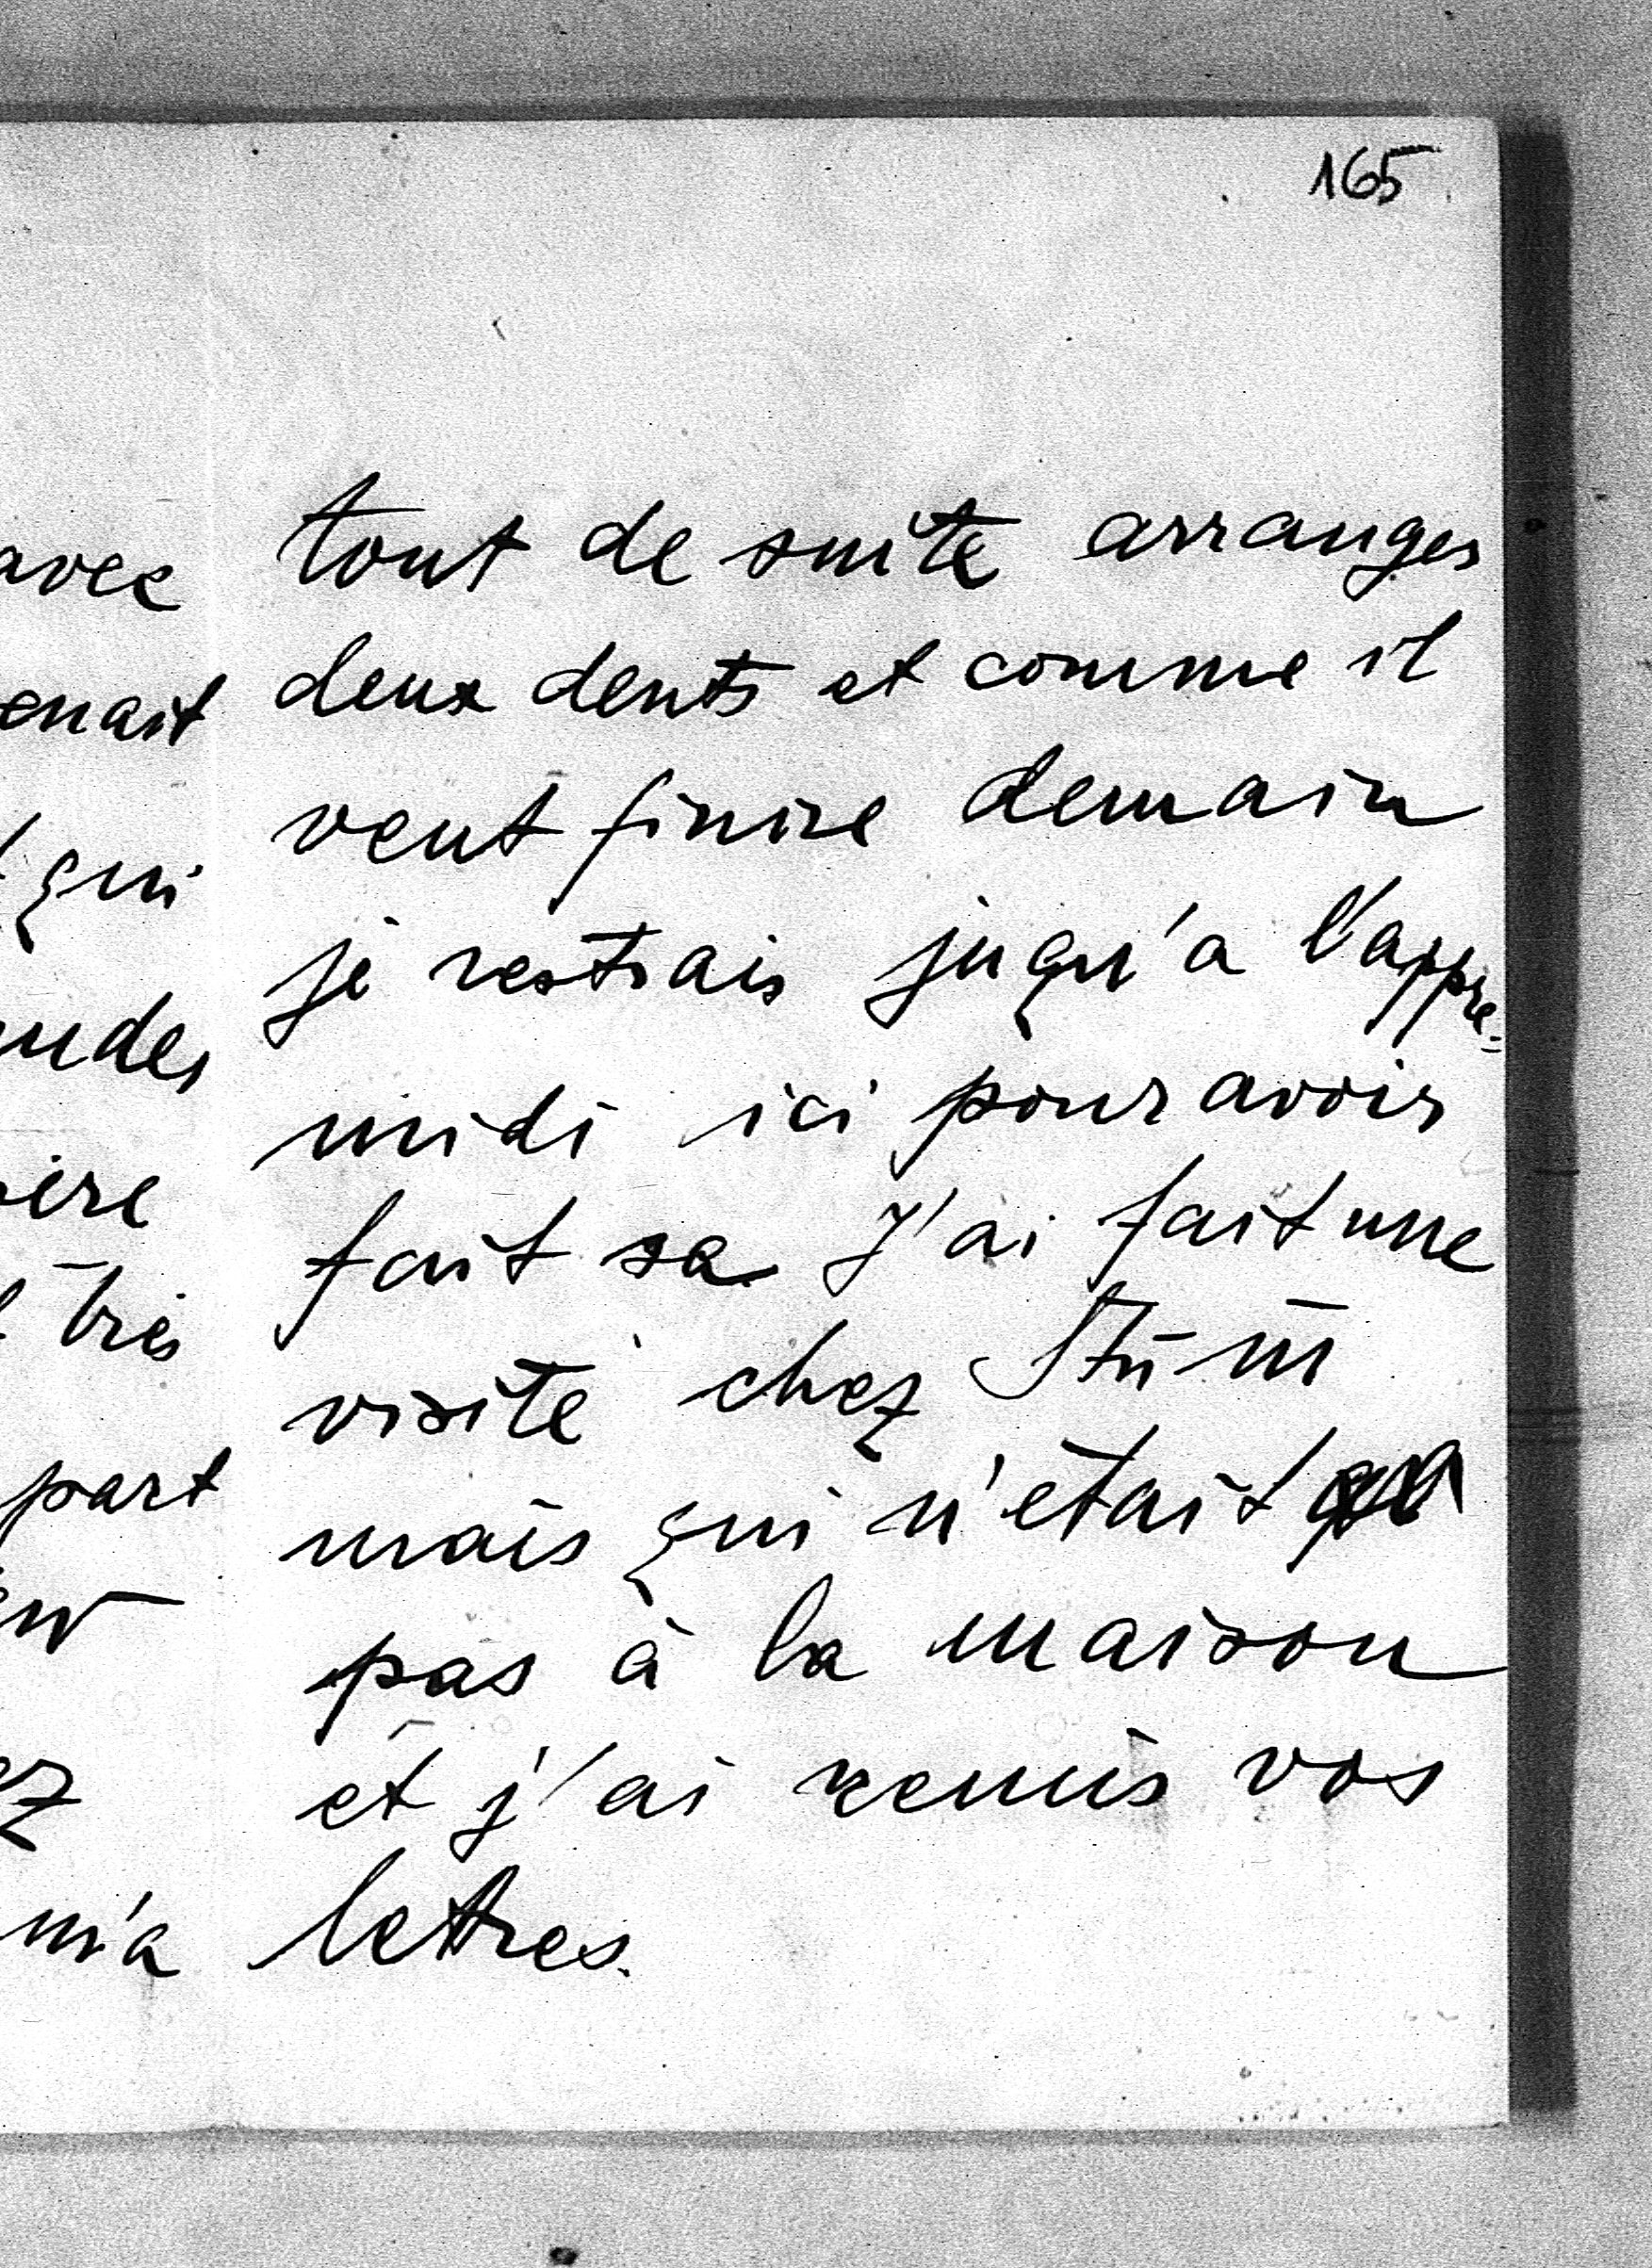 165
avec
enait
qui
très
part
ez
m'a
tout de suite arranger
deux dents et comme il
veut finire demain
je restrais juqu'a l'appre-
midi ici pour avoir
fait sa J'ai fait une
visite chez
mais qui n'était
pas à la maison
et j'ai remis vos
lettres.